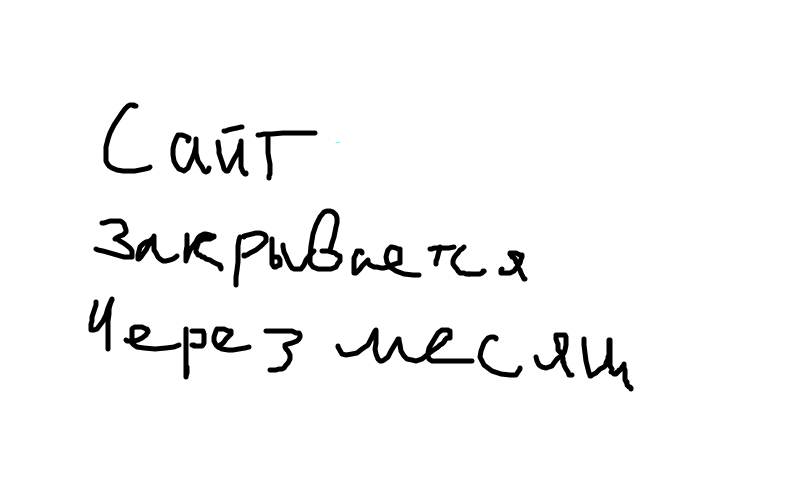 Сайт
закрывается
через месяц